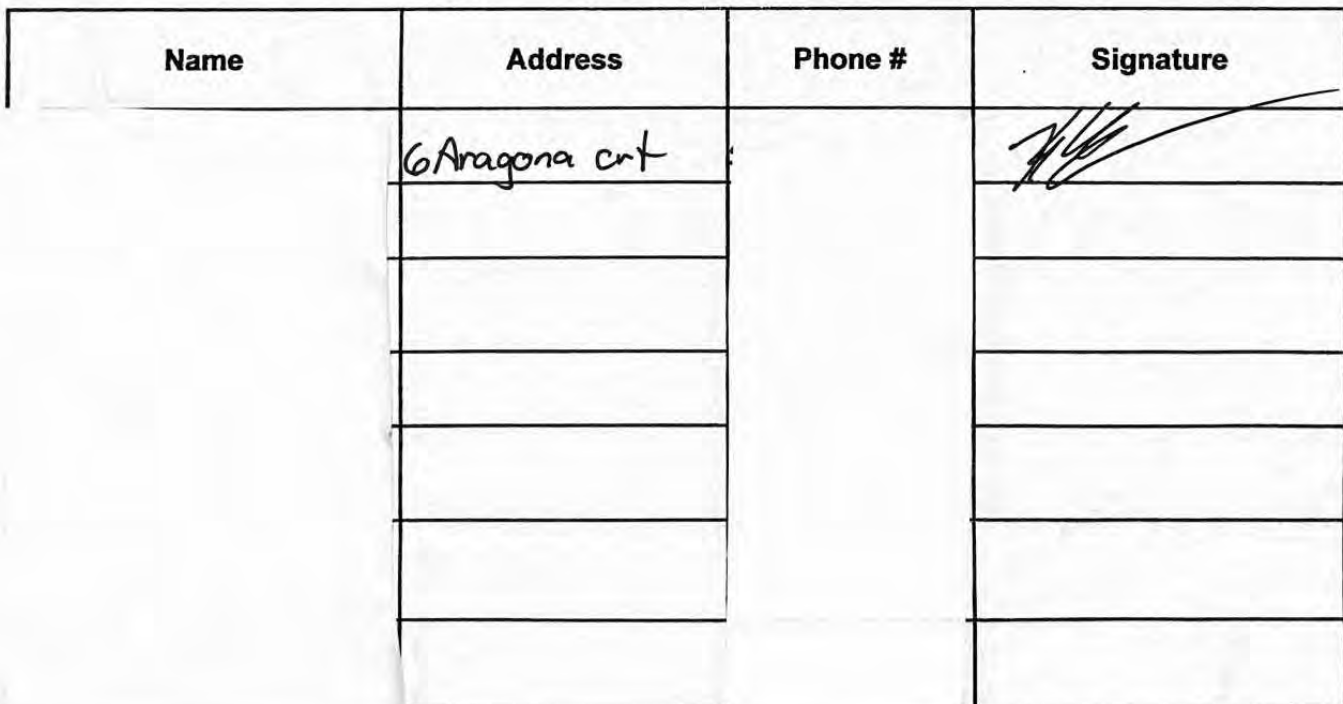 Name Address Phone # Signature
6 Aragona crt